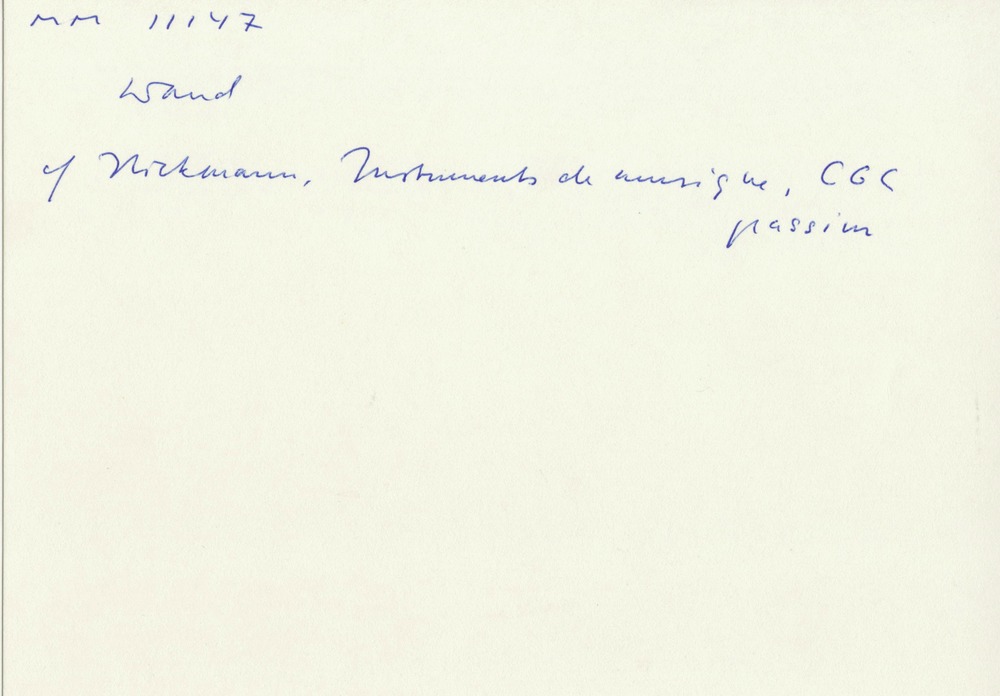 MM 11147
Wand
cf Hickmann, Instruments de musique, CGC
passim